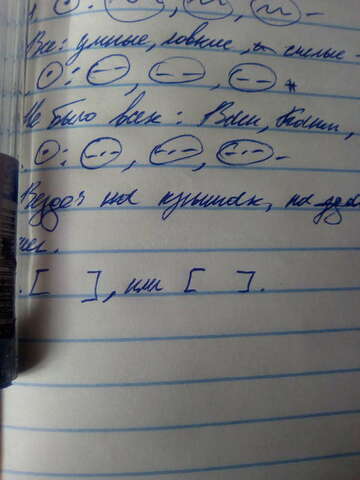 Все: умные, ловкие, смелые -
Не было всех: Вали, Коли,
Везде: на крышах, на
[ ], или [ ].